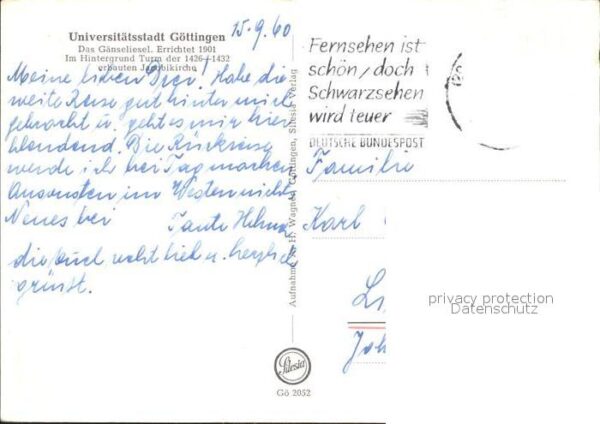 15.9.60
Universitätsstadt Göttingen
Das Gänseliesel. Errichtet 1901
Im Hintergrund Turm der 1426-1432
erbauten Jakobikirche
Meine lieben Drei! Habe die
weite Reise gut hinter mich
gebracht u. geht es mir hier
blendend. Die Rückreise
werde ich bei Tag machen
Ansonsten im Westen nichts
Neues bei Tante Helma
die Euch recht lieb u. herzlich
grüsst.
Aufnahme u. H. Wagner, Göttingen, Silesia Verlag
Silesia
Gö 2052
Fernsehen ist
schön, doch
Schwarzsehen
wird teuer
DEUTSCHE BUNDESPOST
Familie
Karl
privacy protection
Datenschutz
Joh